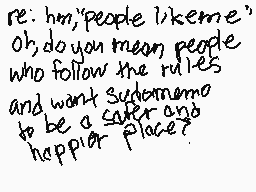 re: hm, "people like me"
oh, do you mean people
who follow the rules
and want sudomemo
to be a safer and
happier place?